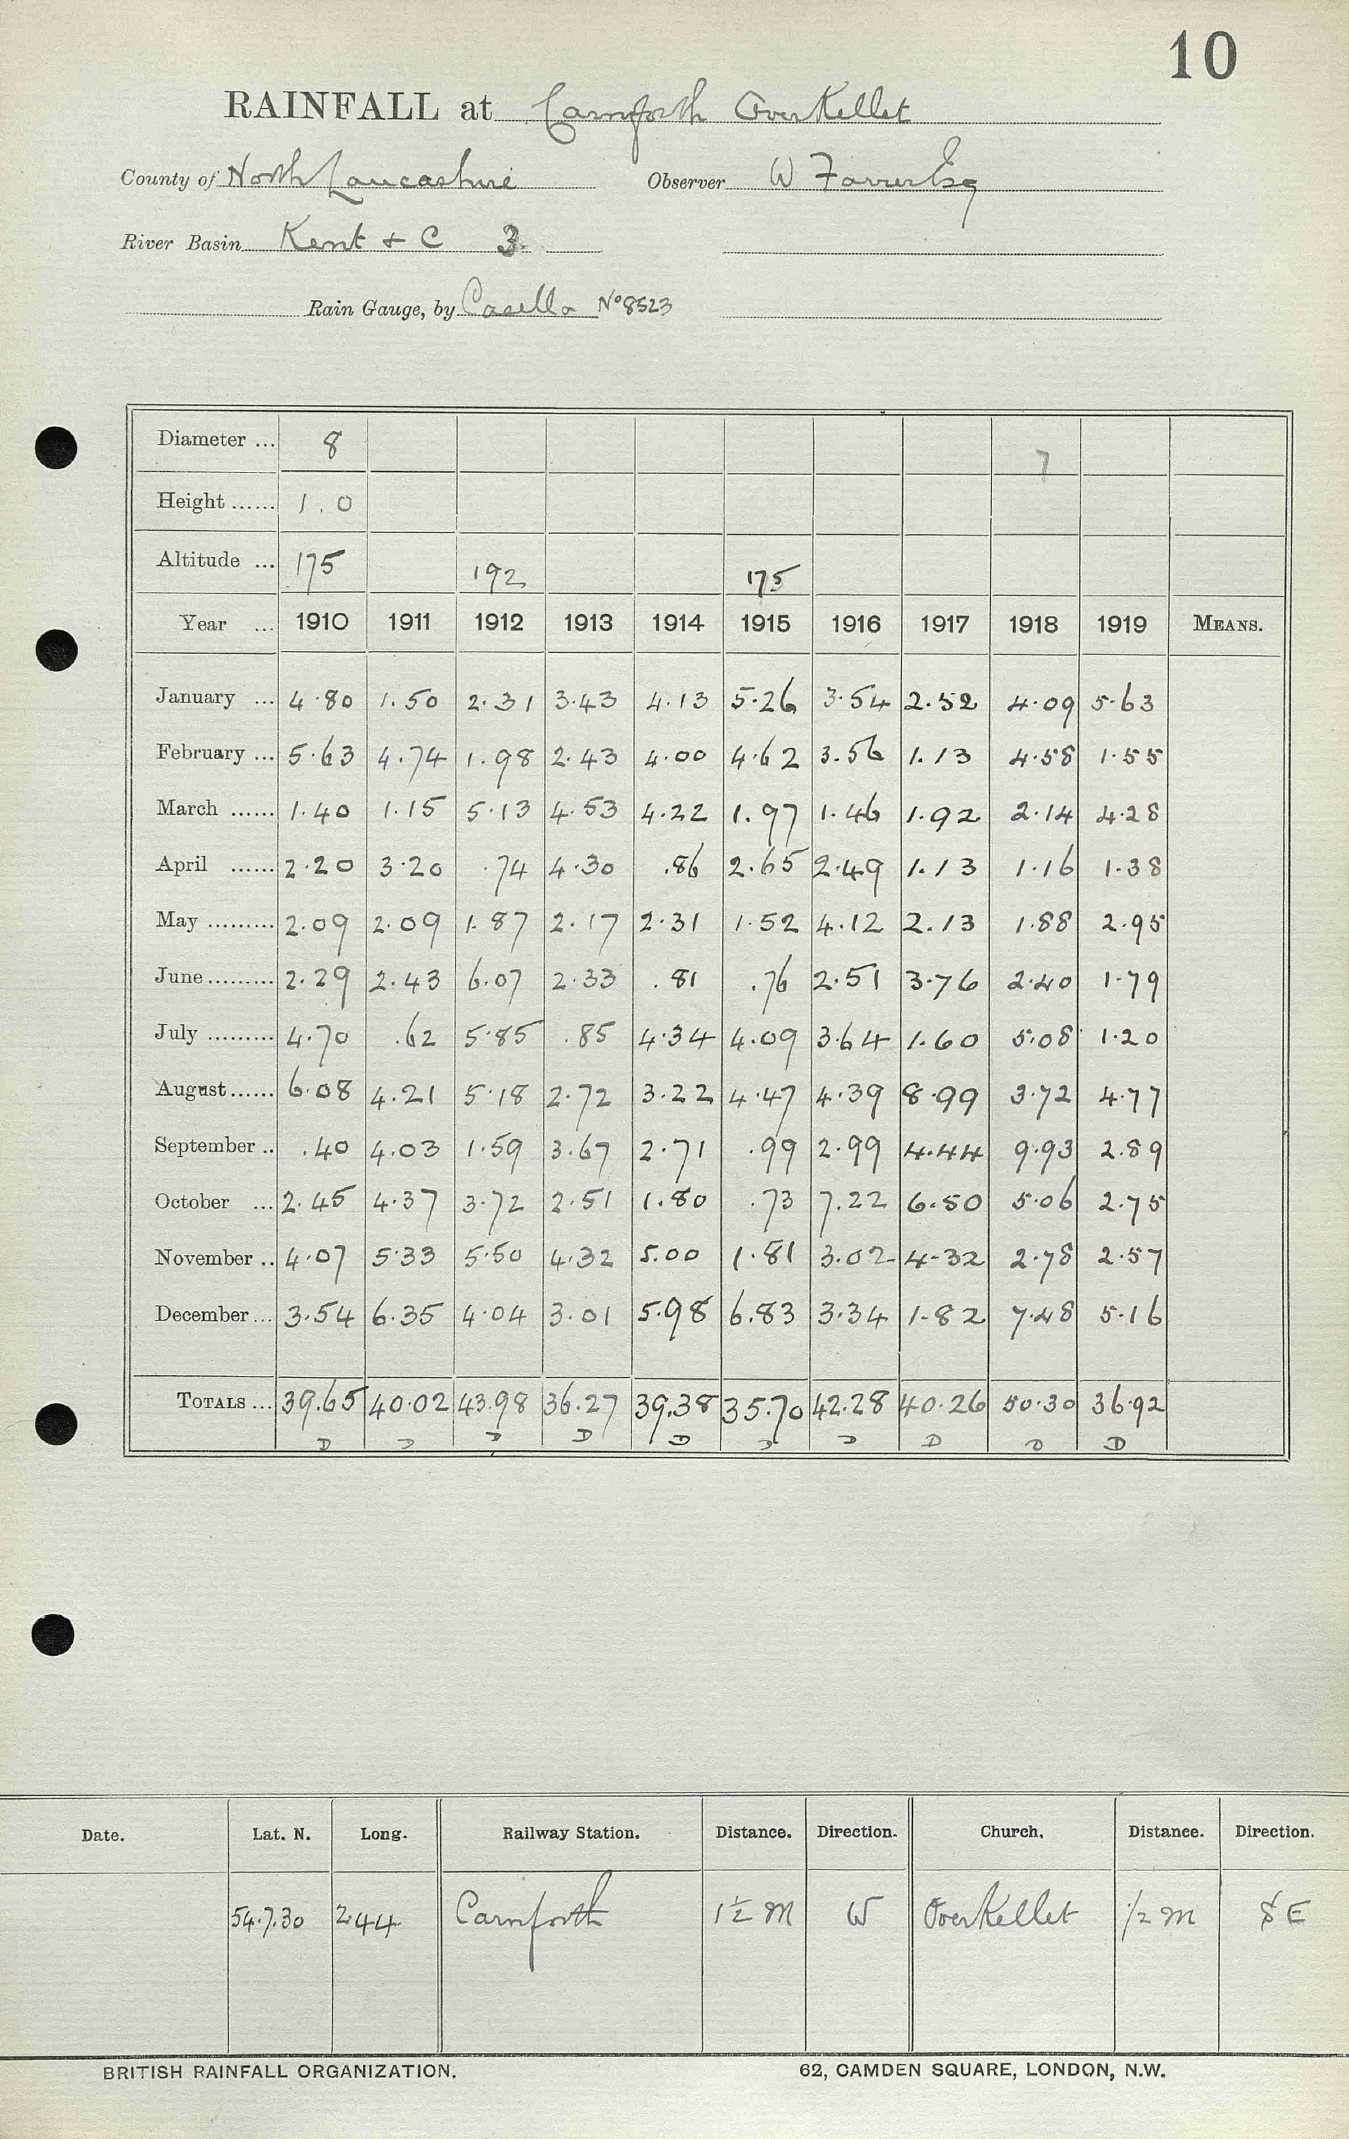 10
RAINFALL at Carnforth Over Kellet
County of North Lancashire Observer W Farrer Esq
River Basin Kent + C 3.
Rain Gauge, by Casella No 8523
Diameter ... 8 7
Height ...... 1.0
Altitude ... 175 192 175
Year ... 1910 1911 1912 1913 1914 1915 1916 1917 1918 1919 MEANS.
January ... 4.80 1.50 2.31 3.43 4.13 5.26 3.54 2.52 4.09 5.63
February ... 5.63 4.74 1.98 2.43 4.00 4.62 3.56 1.13 4.58 1.55
March ...... 1.40 1.15 5.13 4.53 4.22 1.97 1.46 1.92 2.14 4.28
April ...... 2.20 3.20 .74 4.30 .86 2.65 2.49 1.13 1.16 1.38
May ......... 2.09 2.09 1.87 2.17 2.31 1.52 4.12 2.13 1.88 2.95
June ......... 2.29 2.43 6.07 2.33 .81 .76 2.51 3.76 2.40 1.79
July ......... 4.70 .62 5.85 .85 4.34 4.09 3.64 1.60 5.08 1.20
August ...... 6.08 4.21 5.18 2.72 3.22 4.47 4.39 8.99 3.72 4.77
September .. .40 4.03 1.59 3.67 2.71 .99 2.99 4.44 9.93 2.89
October ... 2.45 4.37 3.72 2.51 1.80 .73 7.22 6.50 5.06 2.75
November .. 4.07 5.33 5.50 4.32 5.00 1.81 3.02 4.32 2.78 2.57
December ... 3.54 6.35 4.04 3.01 5.98 6.83 3.34 1.82 7.48 5.16
TOTALS ... 39.65 40.02 43.98 36.27 39.38 35.70 42.28 40.26 50.30 36.92
D D D D D D D D D D
Date. Lat. N. Long. Railway Station. Distance. Direction. Church. Distance. Direction.
54.7.30 2 44 Carnforth 1½ M W Over Kellet ½ m S E
BRITISH RAINFALL ORGANIZATION. 62, CAMDEN SQUARE, LONDON, N.W.